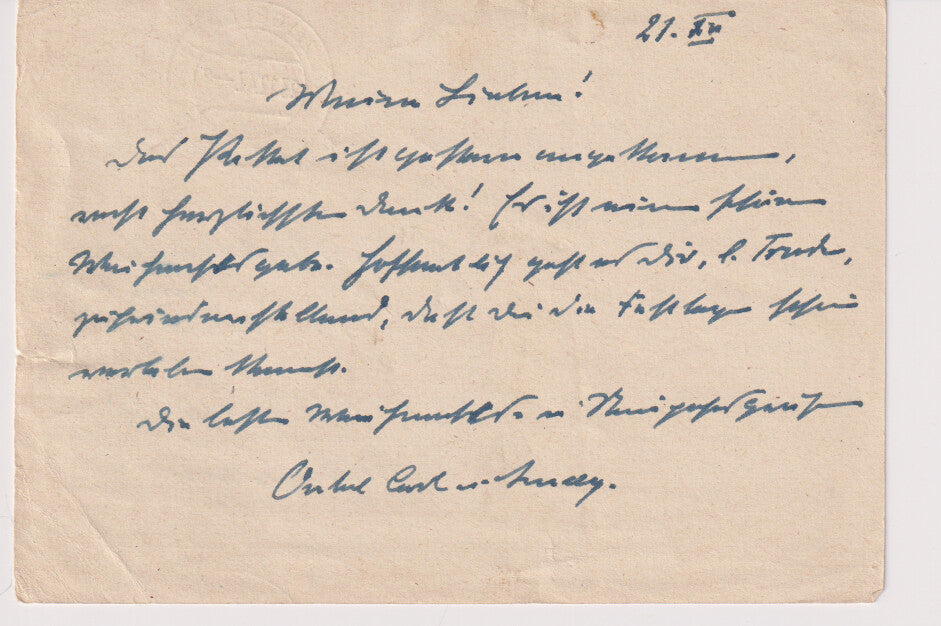 21. XII
Meine Lieben!
Das Paket ist gestern angekommen,
recht herzlichsten Dank! Er ist eine schöne
Weihnachtsgabe. Hoffentlich geht es Dir, l. Trude,
zufriedenstellend, daß du die Festtage schön
verleben kannst.
Die besten Weihnachts- u. Neujahrsgrüße
Onkel Carl u.